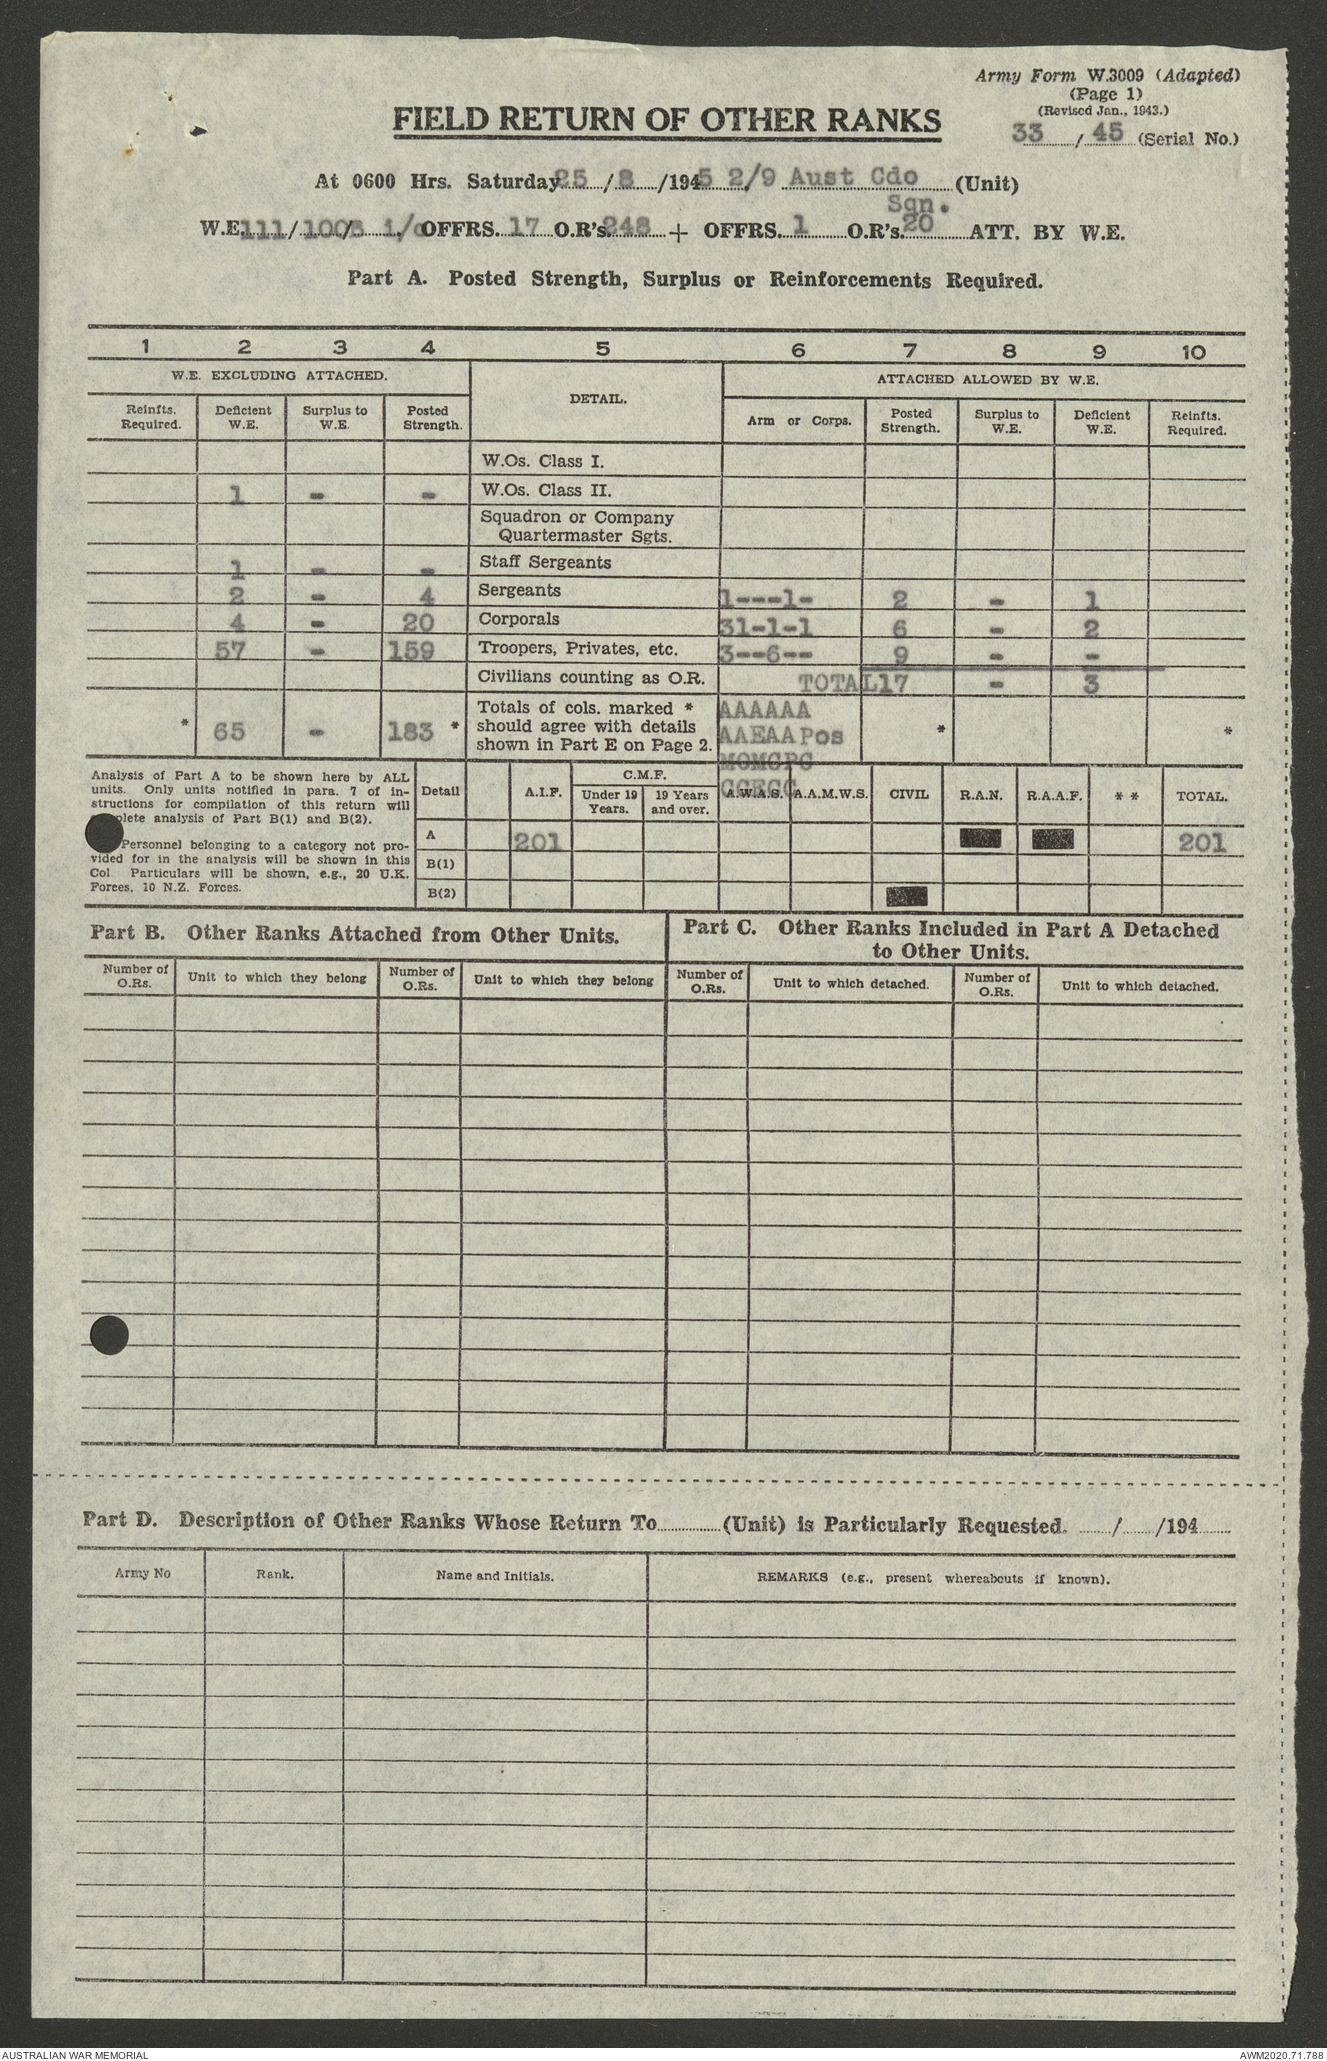 Army Form W.3009 (Adapted)
(Page 1)
(Revised Jan., 1943.)
33 / 45 (Serial No.)
FIELD RETURN OF OTHER RANKS
At 0600 Hrs. Saturday 25 / 8 /1945 2/9 Aust Cdo (Unit)
Sqn.
W.E. 111/1003 i/c OFFRS. 17 O.R's. 248 + OFFRS. 1 O.R's. 20 ATT. BY W.E.
Part A. Posted Strength, Surplus or Reinforcements Required.
1 2 3 4 5 6 7 8 9 10
W.E. EXCLUDING ATTACHED. DETAIL. ATTACHED ALLOWED BY W.E.
Reinfts. Required. Deficient W.E. Surplus to W.E. Posted Strength. Arm or Corps. Posted Strength. Surplus to W.E. Deficient W.E. Reinfts. Required.
W.Os. Class I.
1 - - W.Os. Class II.
Squadron or Company
Quartermaster Sgts.
1 - - Staff Sergeants
2 - 4 Sergeants 1---1- 2 - 1
4 - 20 Corporals 31-1-1 6 - 2
57 - 159 Troopers, Privates, etc. 3--6-- 9 - -
Civilians counting as O.R. TOTAL 17 - 3
* 65 - 183 * Totals of cols. marked * AAAAAA * *
should agree with details AAEAAPos
shown in Part E on Page 2. MOMCPC
CGECC
Analysis of Part A to be shown here by ALL
units. Only units notified in para. 7 of in-
structions for compilation of this return will
complete analysis of Part B(1) and B(2).
Personnel belonging to a category not pro-
vided for in the analysis will be shown in this
Col. Particulars will be shown, e.g., 20 U.K.
Forces, 10 N.Z. Forces.
Detail A.I.F. C.M.F. A.W.A.S. A.A.M.W.S. CIVIL R.A.N. R.A.A.F. * * TOTAL.
Under 19 Years. 19 Years and over.
A 201 201
B(1)
B(2)
Part B. Other Ranks Attached from Other Units.
Part C. Other Ranks Included in Part A Detached
to Other Units.
Number of O.Rs. Unit to which they belong Number of O.Rs. Unit to which they belong Number of O.Rs. Unit to which detached. Number of O.Rs. Unit to which detached.
Part D. Description of Other Ranks Whose Return To............(Unit) is Particularly Requested. ....../....../194......
Army No Rank. Name and Initials. REMARKS (e.g., present whereabouts if known).
AUSTRALIAN WAR MEMORIAL AWM2020.71.788